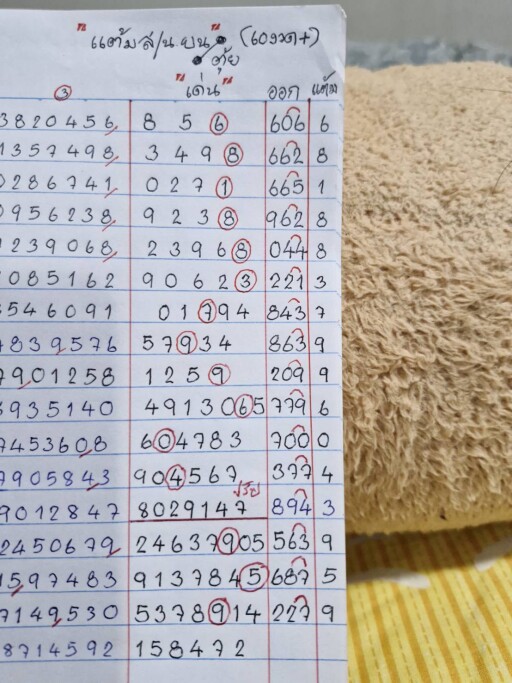 "แต้มส/น.ยน" (เบงวด+)
ตุ้ย
③ "เด่น" ออก แต้ม
3820456 856 606 6
1357498 3498 662 8
0286741 0271 665 1
0956238 9238 962 8
1239068 23968 044 8
1085162 90623 221 3
3546091 01794 843 7
7839576 57934 863 9
7901258 1259 209 9
3935140 4913065 779 6
7453608 604783 700 0
7905843 904567 377 4
9012847 8029147 894 3
2450679 24637905 563 9
1597483 9137845 687 5
7149530 5378914 227 9
8714592 158472